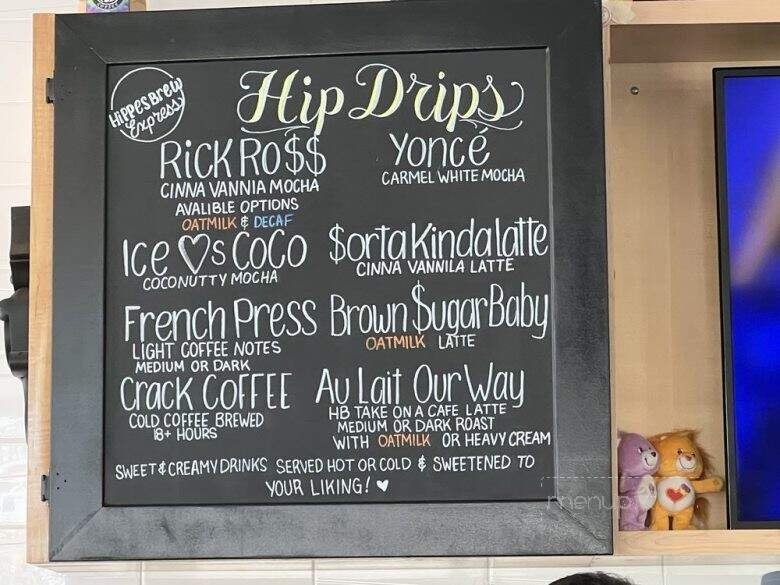 Hippes Brew
Express
Hip Drips
RiCK RO$$
CINNA VANNIA MOCHA
AVALIBLE OPTIONS
OATMILK & DECAF
Yoncé
CARMEL WHITE MOCHA
Ice ♡s COCO
COCONUTTY MOCHA
$orta Kinda latte
CINNA VANNILA LATTE
French Press
LIGHT COFFEE NOTES
MEDIUM OR DARK
Brown $ugar Baby
OATMILK LATTE
Crack COFFEE
COLD COFFEE BREWED
18+ HOURS
Au Lait Our Way
HB TAKE ON A CAFE LATTE
MEDIUM OR DARK ROAST
WITH OATMILK OR HEAVY CREAM
SWEET & CREAMY DRINKS SERVED HOT OR COLD & SWEETENED TO
YOUR LIKING! ♥